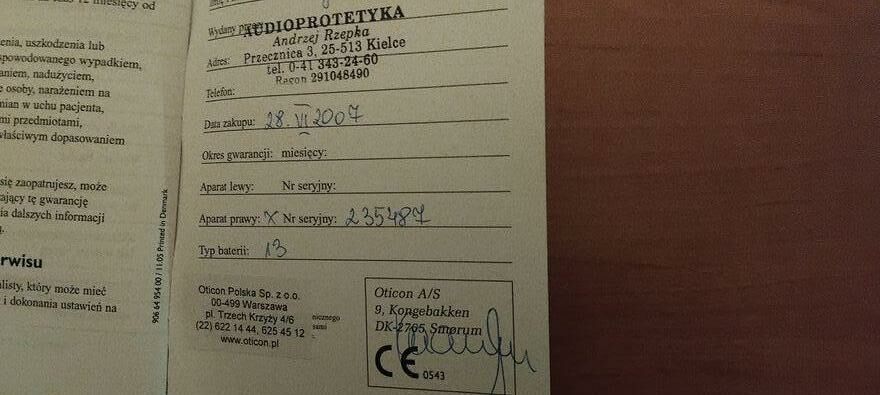 miesięcy od
enia, uszkodzenia lub
spowodowanego wypadkiem,
aniem, nadużyciem,
e osoby, narażeniem na
mian w uchu pacjenta,
mi przedmiotami,
właściwym dopasowaniem
się zaopatrujesz, może
ający tę gwarancję
ia dalszych informacji
rwisu
listy, który może mieć
i dokonania ustawień na
906 64 954 00 / 11.05 Printed in Denmark
Wydany przez:
AUDIOPROTETYKA
Andrzej Rzepka
Adres: Przecznica 3, 25-513 Kielce
tel. 0-41 343-24-60
Regon 291048490
Telefon:
Data zakupu: 28. VI 2007
Okres gwarancji: miesięcy:
Aparat lewy: Nr seryjny:
Aparat prawy: X Nr seryjny: 235487
Typ baterii: 13
Oticon Polska Sp. z o.o.
00-499 Warszawa
pl. Trzech Krzyży 4/6
(22) 622 14 44, 625 45 12
www.oticon.pl
nicznego
sami
Oticon A/S
9, Kongebakken
DK-2765 Smørum
CE 0543